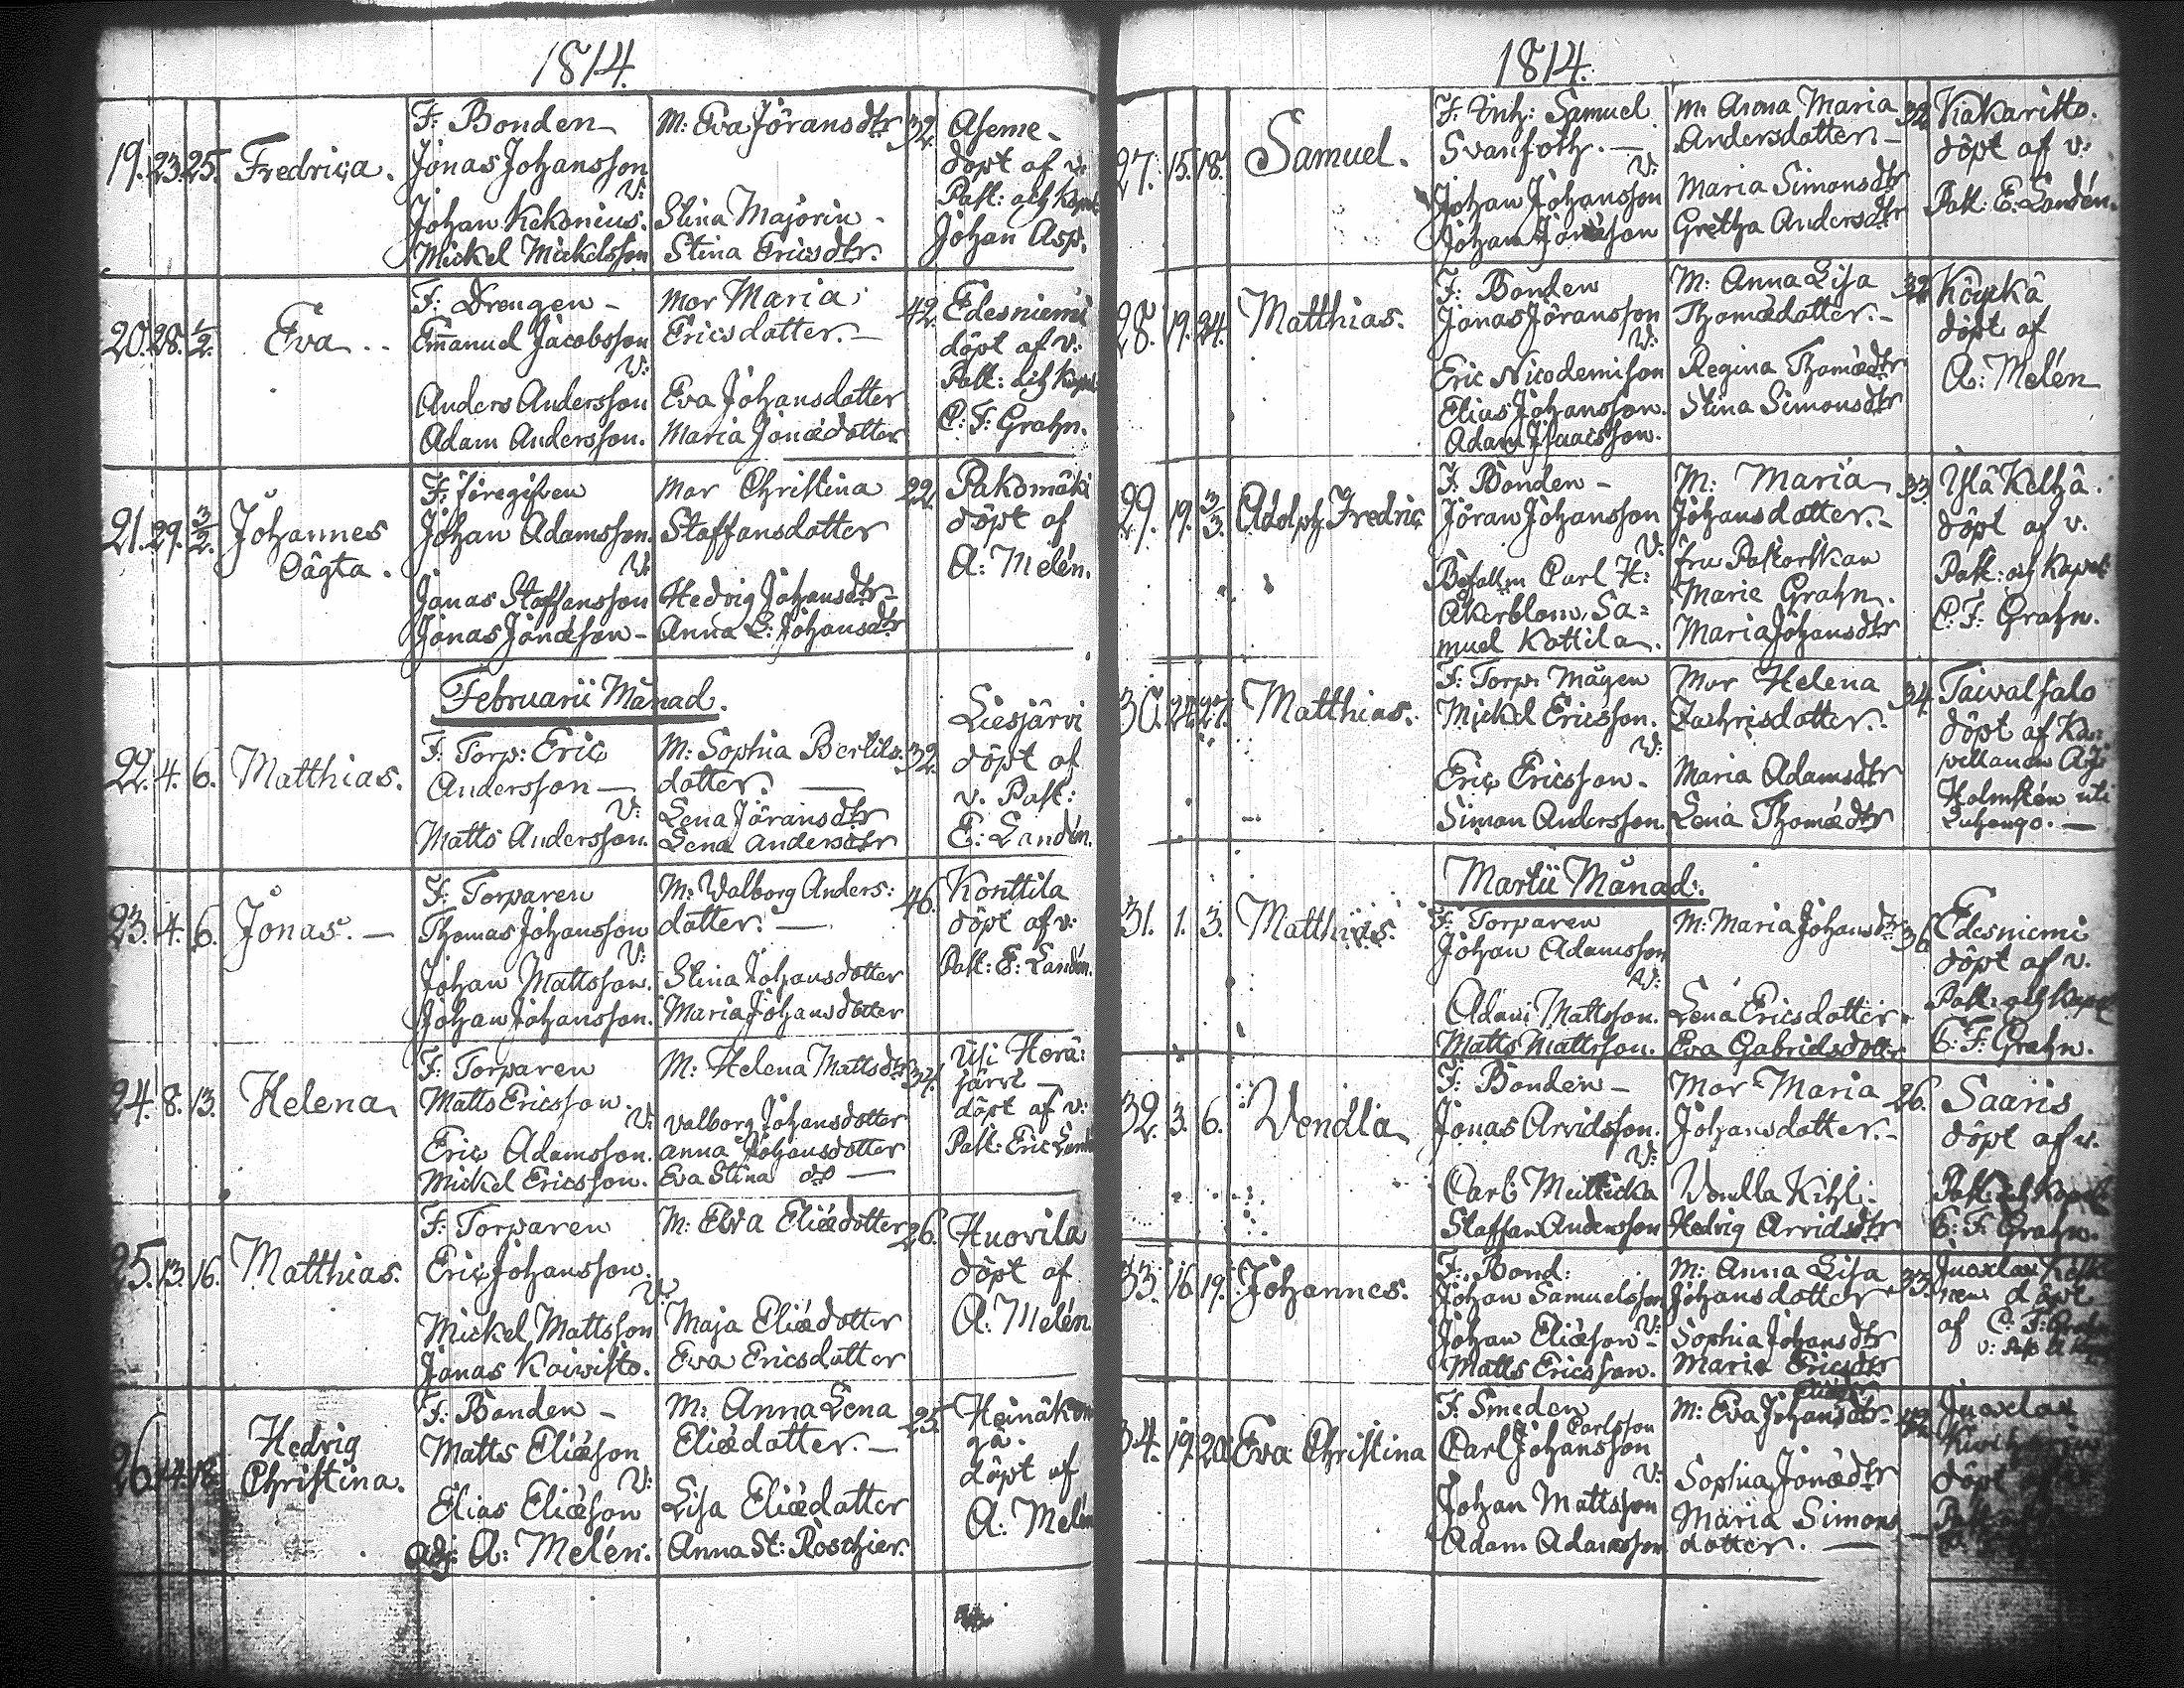 1814.
19. 23. 25. Fredrica. F: Bonden M: Eva Jöransdtr 32. Aseme
Jonas Johansson döpt af v:
V: Past: och Kapel
Johan Kekonius. Stina Majorin Johan Asp.
Mickel Mickelsson Stina Ericsdtr.
20. 28. 1/2. Eva F: Drengen Mor Maria 42. Edesniemi
Emanuel Jacobsson Ericsdotter. döpt af v:
V: Past: och Kapel
Anders Andersson Eva Johansdotter C: F: Grahn.
Adam Andersson. Maria Jonædotter
21. 29. 3/2. Johannes F: föregifven Mor Christina 22. Pakomäki
Oägta. Johan Adamsson. Staffansdotter döpt af
V: A: Melén.
Jonas Staffansson Hedvig Johansdtr
Jonas Jonæson Anna L: Johansdtr
Februarii Månad.
22. 4. 6. Matthias. F: Torp: Eric M: Sophia Bertils 32. Liesjärvi
Andersson dotter. döpt af
V: Lena Jöransdtr v. Past:
Matts Andersson. Lena Andersdtr E: Landén.
23. 4. 6. Jonas. F: Torparen M: Walborg Anders: 46. Konttila
Thomas Johansson dotter. döpt af v:
V: Past: E: Landén.
Johan Mattsson. Stina Johansdotter
Johan Johansson. Maria Johansdotter
24. 8. 13. Helena F: Torparen M: Helena Mattsdtr 34. Usi Horä:
Matts Ericsson. järvi
V: Valborg Johansdotter döpt af v:
Eric Adamsson. Anna Johansdotter Past: Eric
Mickel Ericsson. Eva Stina do
25. 13. 16. Matthias. F: Torparen M: Eva Eliædotter 26. Huovila
Eric Johansson. döpt af
V: A: Melén
Mickel Mattsson Maja Eliædotter
Jonas Koivisto. Eva Ericsdotter
26. 14. 18. Hedvig F: Bonden M: Anna Lena 25.
Christina. Matts Eliæson Eliædotter. döpt af
V: A: Melén
Elias Eliæson Lisa Eliædotter
Adj: A: Melén. Anna St: Roschier.
1814.
27. 15. 18. Samuel. F: Inh: Samuel M: Anna Maria 32. Kakaristo.
Svanfolh. Andersdotter. döpt af v:
V: Past: E: Landén.
Johan Johansson Maria Simonsdtr
Johan Jonæson Gretha Andersdtr
28. 19. 24. Matthias. F: Bonden M: Anna Lisa 32. Köykä
Jonas Jöransson Thomædotter. döpt af
V: A: Melén
Eric Nicodemison Regina Thomædtr
Elias Johansson. Stina Simonsdtr
Adam Isaacsson.
29. 19. 3/3. Adolph Fredric F: Bonden M: Maria 33. Ylä Kelhä.
Jöran Johansson Johansdotter. döpt af v.
V: fru Pastorskan Past: och Kapel
Befallm Carl H: Marie Grahn. C. F: Grahn.
Åkerblom, Sa= Maria Johansdtr
muel Kottila.
30. 27. Matthias. F: Torp: Mågen Mor Helena 34. Taivalsalo
Mickel Ericsson. Zachrisdotter. döpt af Ka:
V: pellanen
Eric Ericsson. Maria Adamsdtr Holmstén uti
Simon Andersson. Lena Thomædtr Luhango.
Martii Månad.
31. 1. 3. Matthias. F: Torparen M: Maria Johansdtr 36. Edesniemi
Johan Adamsson döpt af v.
V: Past: och Kapel
Adam Mattsson. Lena Ericsdotter C: F: Grahn.
Matts Mattsson. Eva Gabrielsdotter
32. 3. 6. Vendla F: Bonden Mor Maria 26. Saaris
Jonas Arvidsson. Johansdotter. döpt af v.
V: Past: och Kapel
Carl Vendla Kihl: C: F. Grahn.
Staffan Andersson Hedvig Arvidsdtr
33. 16. 19. Johannes. F: Bond: M: Anna Lisa 33.
Johan Samuelsson Johansdotter döpt
V: af C: F:
Johan Eliæson Sophia Johansdtr
Matts Ericsson. Maria Ericsdtr
34. 19. 20. Eva Christina F: Smeden M: Eva Johansdtr. 42.
Carlsson
Carl Johansson döpt
V: Sophia Jonædtr
Johan Mattsson Maria Simons
Adam Adamsson dotter.